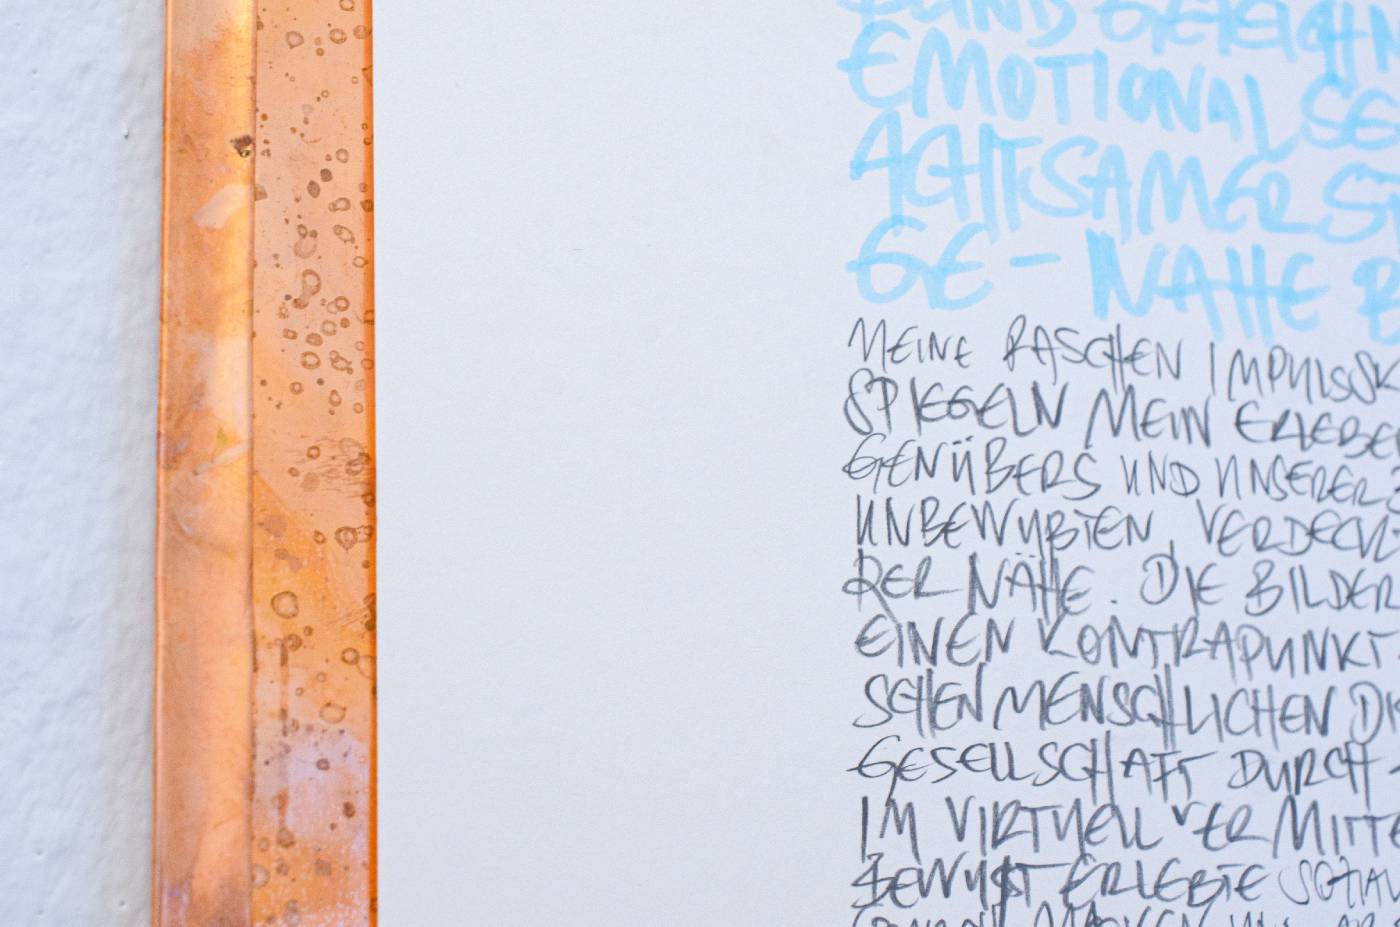 EMOTIONAL SE
ACHTSAMER ST
GE - NÄHE B
MEINE RASCHEN IMPULSSK
SPIEGELN MEIN ERLEBEN
GENÜBERS UND UNSERER
UNBEWUßTEN, VERDECK
RER NÄHE. DIE BILDER
EINEN KONTRAPUNKT
SCHEN MENSCHLICHEN DI
GESELLSCHAFT DURCH
IM VIRTUELL VERMITTE
BEWUßT ERLEBTE